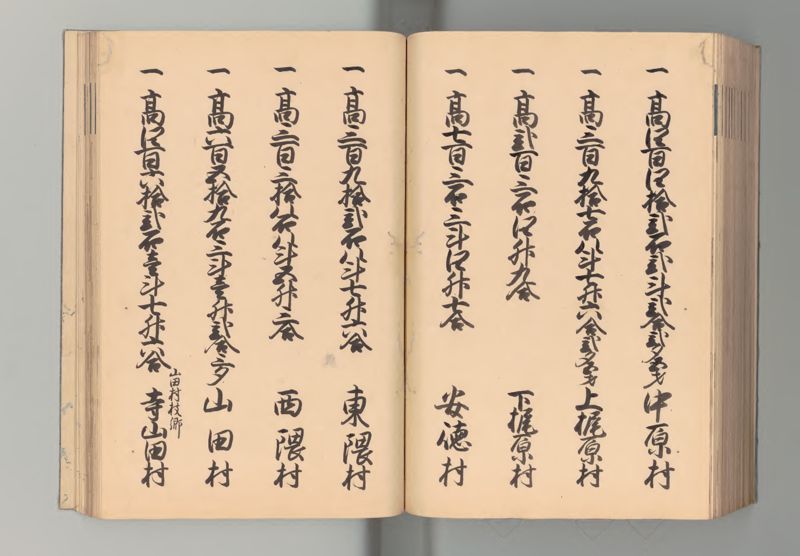 一 高四百四拾弐石弐斗弐合弐夕五才 中原村
一 高三百九拾七石八斗七升六合弐夕五才 上梶原村
一 高弐百三石四升九合 下梶原村
一 高七百三石三斗四升七合 安徳村
一 高三百九拾弐石八斗七升六合 東隈村
一 高三百三拾八石八斗五升三合 西隈村
一 高六百五拾九石三斗壱升弐合 山田村
山田村枝郷
一 高四百六拾弐石壱斗七升六合 寺山田村